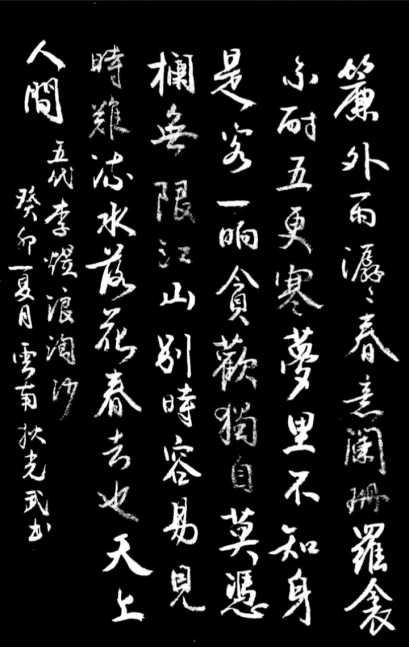 簾外雨潺〻春意闌珊羅衾
不耐五更寒夢里不知身
是客一晌貪歡獨自莫憑
欄無限江山別時容易見
時難流水落花春去也天上
人間
五代李煜浪淘沙
癸卯夏月雲南狄光武书